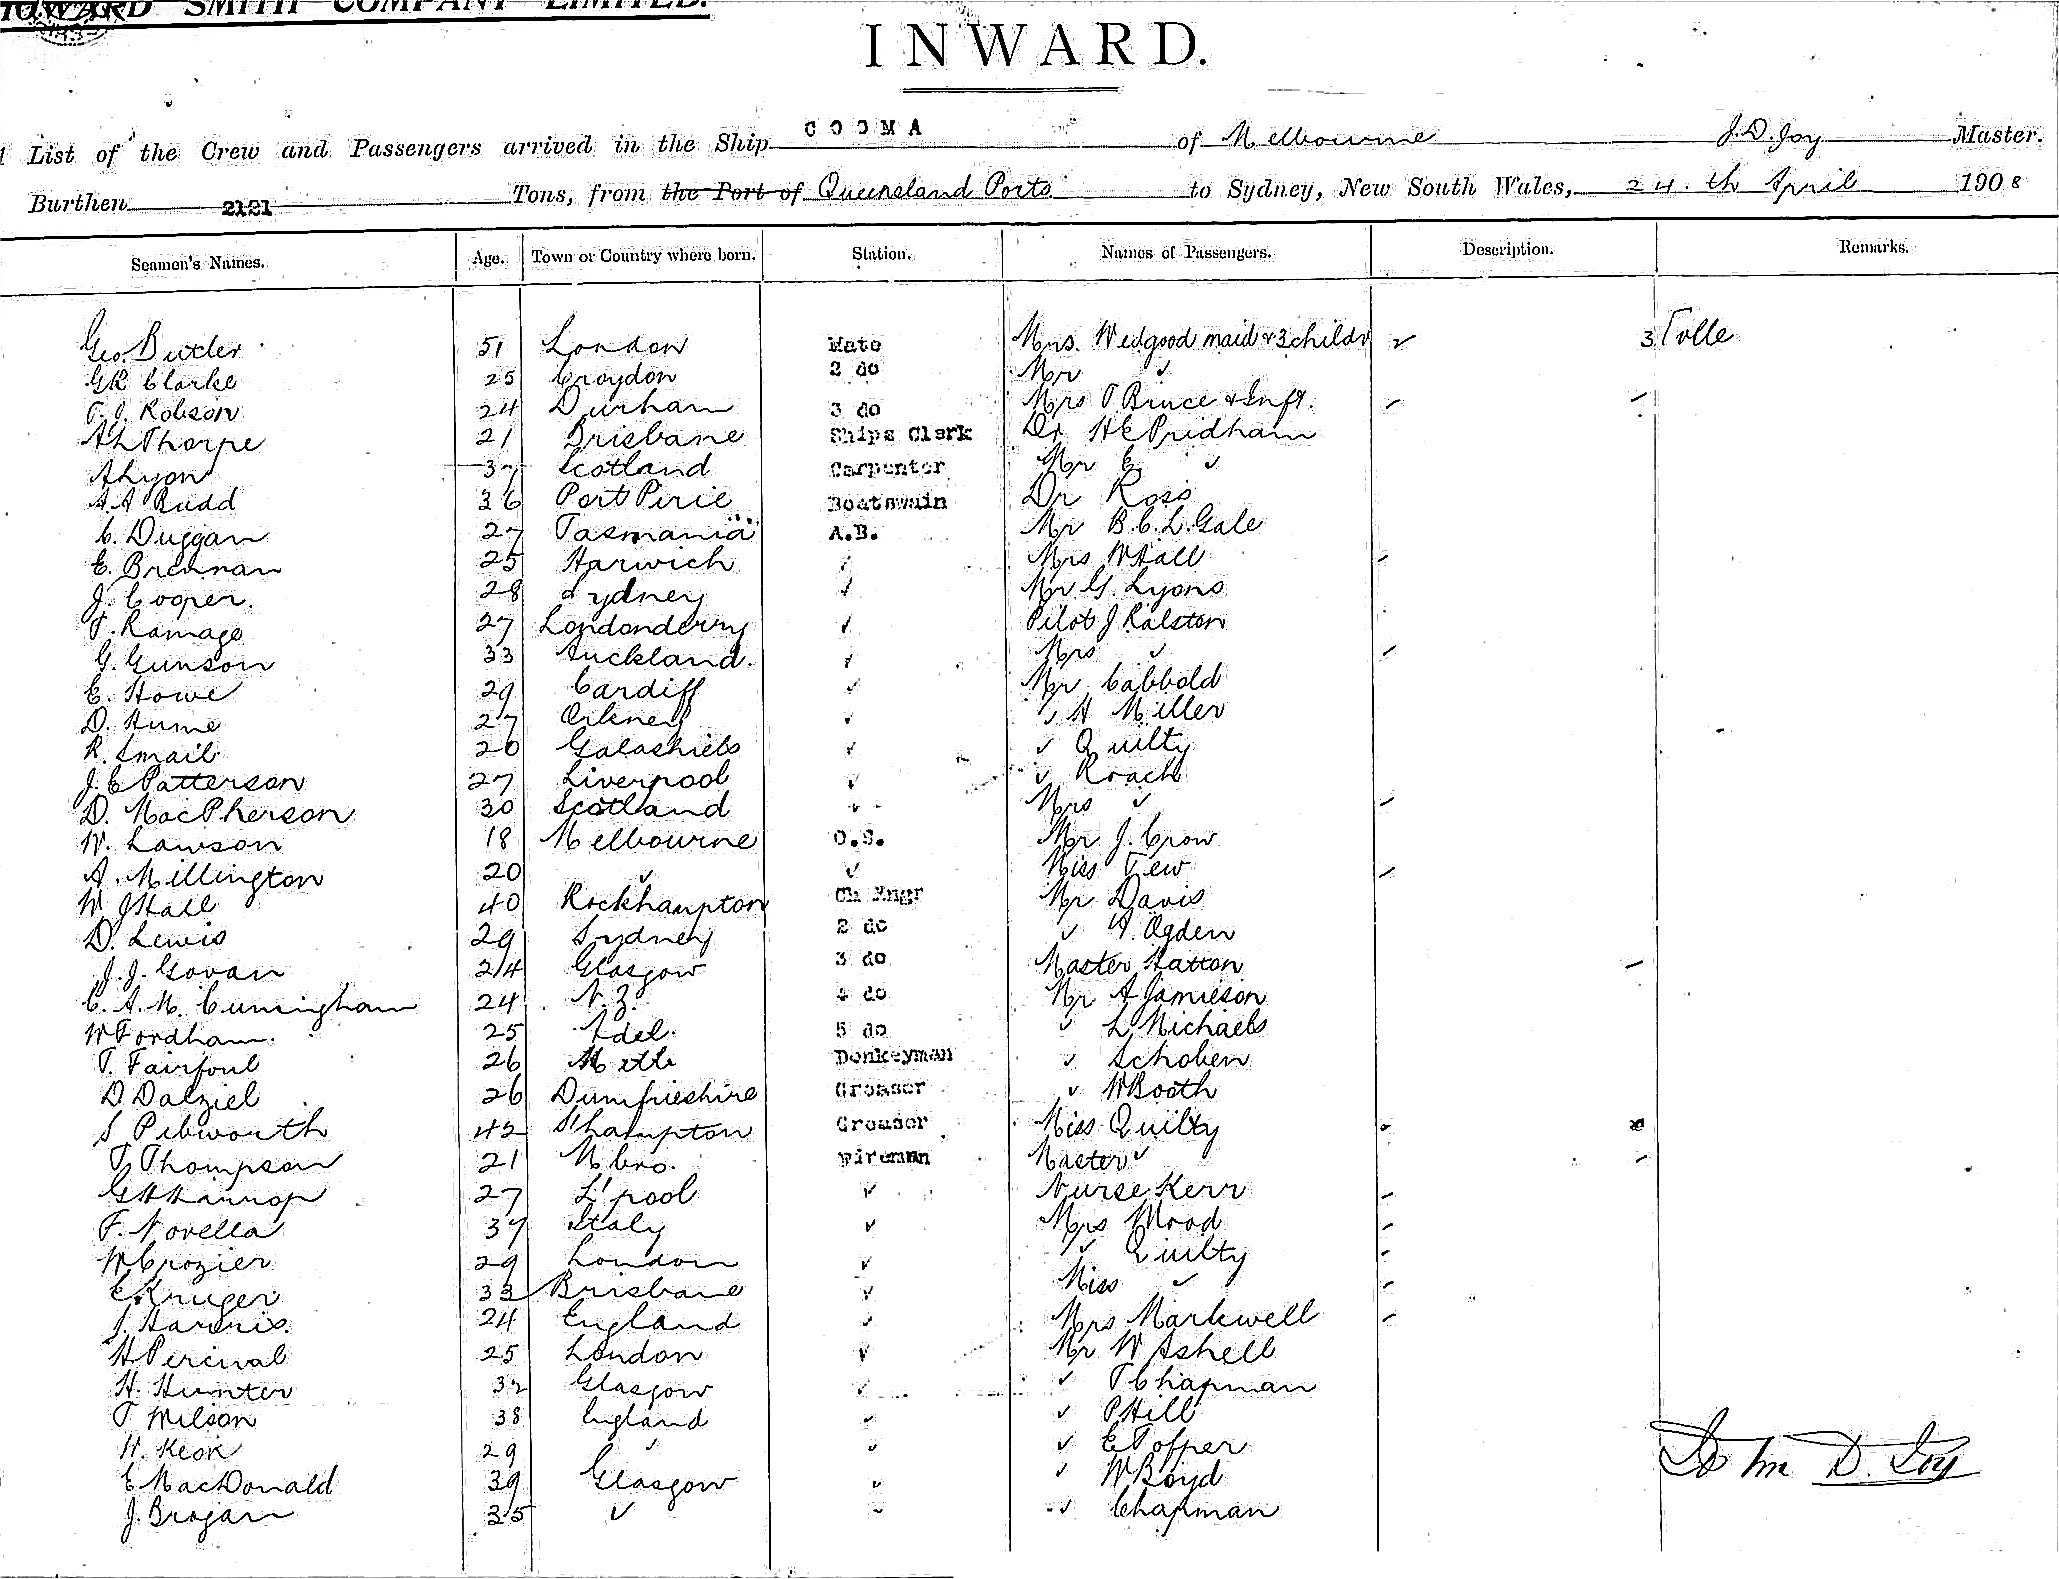 HOWARD SMITH COMPANY LIMITED.
INWARD.
List of the Crew and Passengers arrived in the Ship COOMA of Melbourne J.D. Joy Master.
Burthen 2121 Tons, from the Port of Queensland Ports to Sydney, New South Wales, 24.th April 1908
Seamen's Names. Age. Town or Country where born. Station. Names of Passengers. Description. Remarks.
Geo. Butler 51 London Mate Mrs. Wedgood maid & 3 childr ✓ 3
GR Clarke 25 Croydon 2 do Mr ✓
T. J. Robson 24 Durham 3 do Mrs T. Bruce & Inft.
AL Thorpe 21 Brisbane Ships Clerk Dr HE Pridham
A Lyon 37 Scotland Carpenter Mr E ✓
A.A Rudd 36 Port Pirie Boatswain Dr Ross
C. Duggan 27 Tasmania A.B. Mr B.C.L. Gale
E. Brennan 25 Harwich Mrs W Hall
J. Cooper. 28 Sydney Mr G. Lyons
T. Ramage 27 Londonderry ✓ Pilot J Ralston
G. Gunson 33 Auckland. Mrs ✓
E. Howe 29 Cardiff ✓ Mr Cabbold
D. Hume 27 Orkney ✓ ✓ H Miller
R. Smail 26 Galashiels ✓ ✓ Quilty
J. E Patterson 27 Liverpool ✓ ✓ Roach
D. MacPherson 30 Scotland ✓ Mrs ✓
W. Lawson 18 Melbourne O.S. Mr J. Crow
A. Millington 20 ✓ ✓ Miss Tew
W J Hall 40 Rockhampton Ch Engr Mr Davis
D. Lewis 29 Sydney 2 do ✓ A. Ogden
J. J. Govan 24 Glasgow 3 do Master Hatton
C. A. M. Cunningham 24 N.Z. 4 do Mr A Jamieson
W Fordham. 25 Adel. 5 do ✓ L Michaels
T. Fairfoul 26 Donkeyman ✓ Schoben
D Dalziel 26 Dumfrieshire Greaser ✓ W Booth
S Pebworth 42 S'hampton Greaser Miss Quilty
T. Thompson 21 Fireman Master ✓
27 L'pool ✓ Nurse Kerr
F. Novella 37 Italy ✓ Mrs Wood
W Crozier 29 London ✓ ✓ Quilty
E Kruger 33 Brisbane ✓ Miss ✓
J. Harris. 24 England ✓ Mrs Markwell
H Percival 25 London ✓ Mr W Ashell
H. Hunter 32 Glasgow ✓ ✓ T Chapman
T Wilson 38 England ✓ ✓ P Hill
W. Keok 29 ✓ ✓ ✓ E Topper
E MacDonald 39 Glasgow ✓ ✓ W Boyd
J. Brogan 35 ✓ ✓ ✓ Chapman
John D. Joy